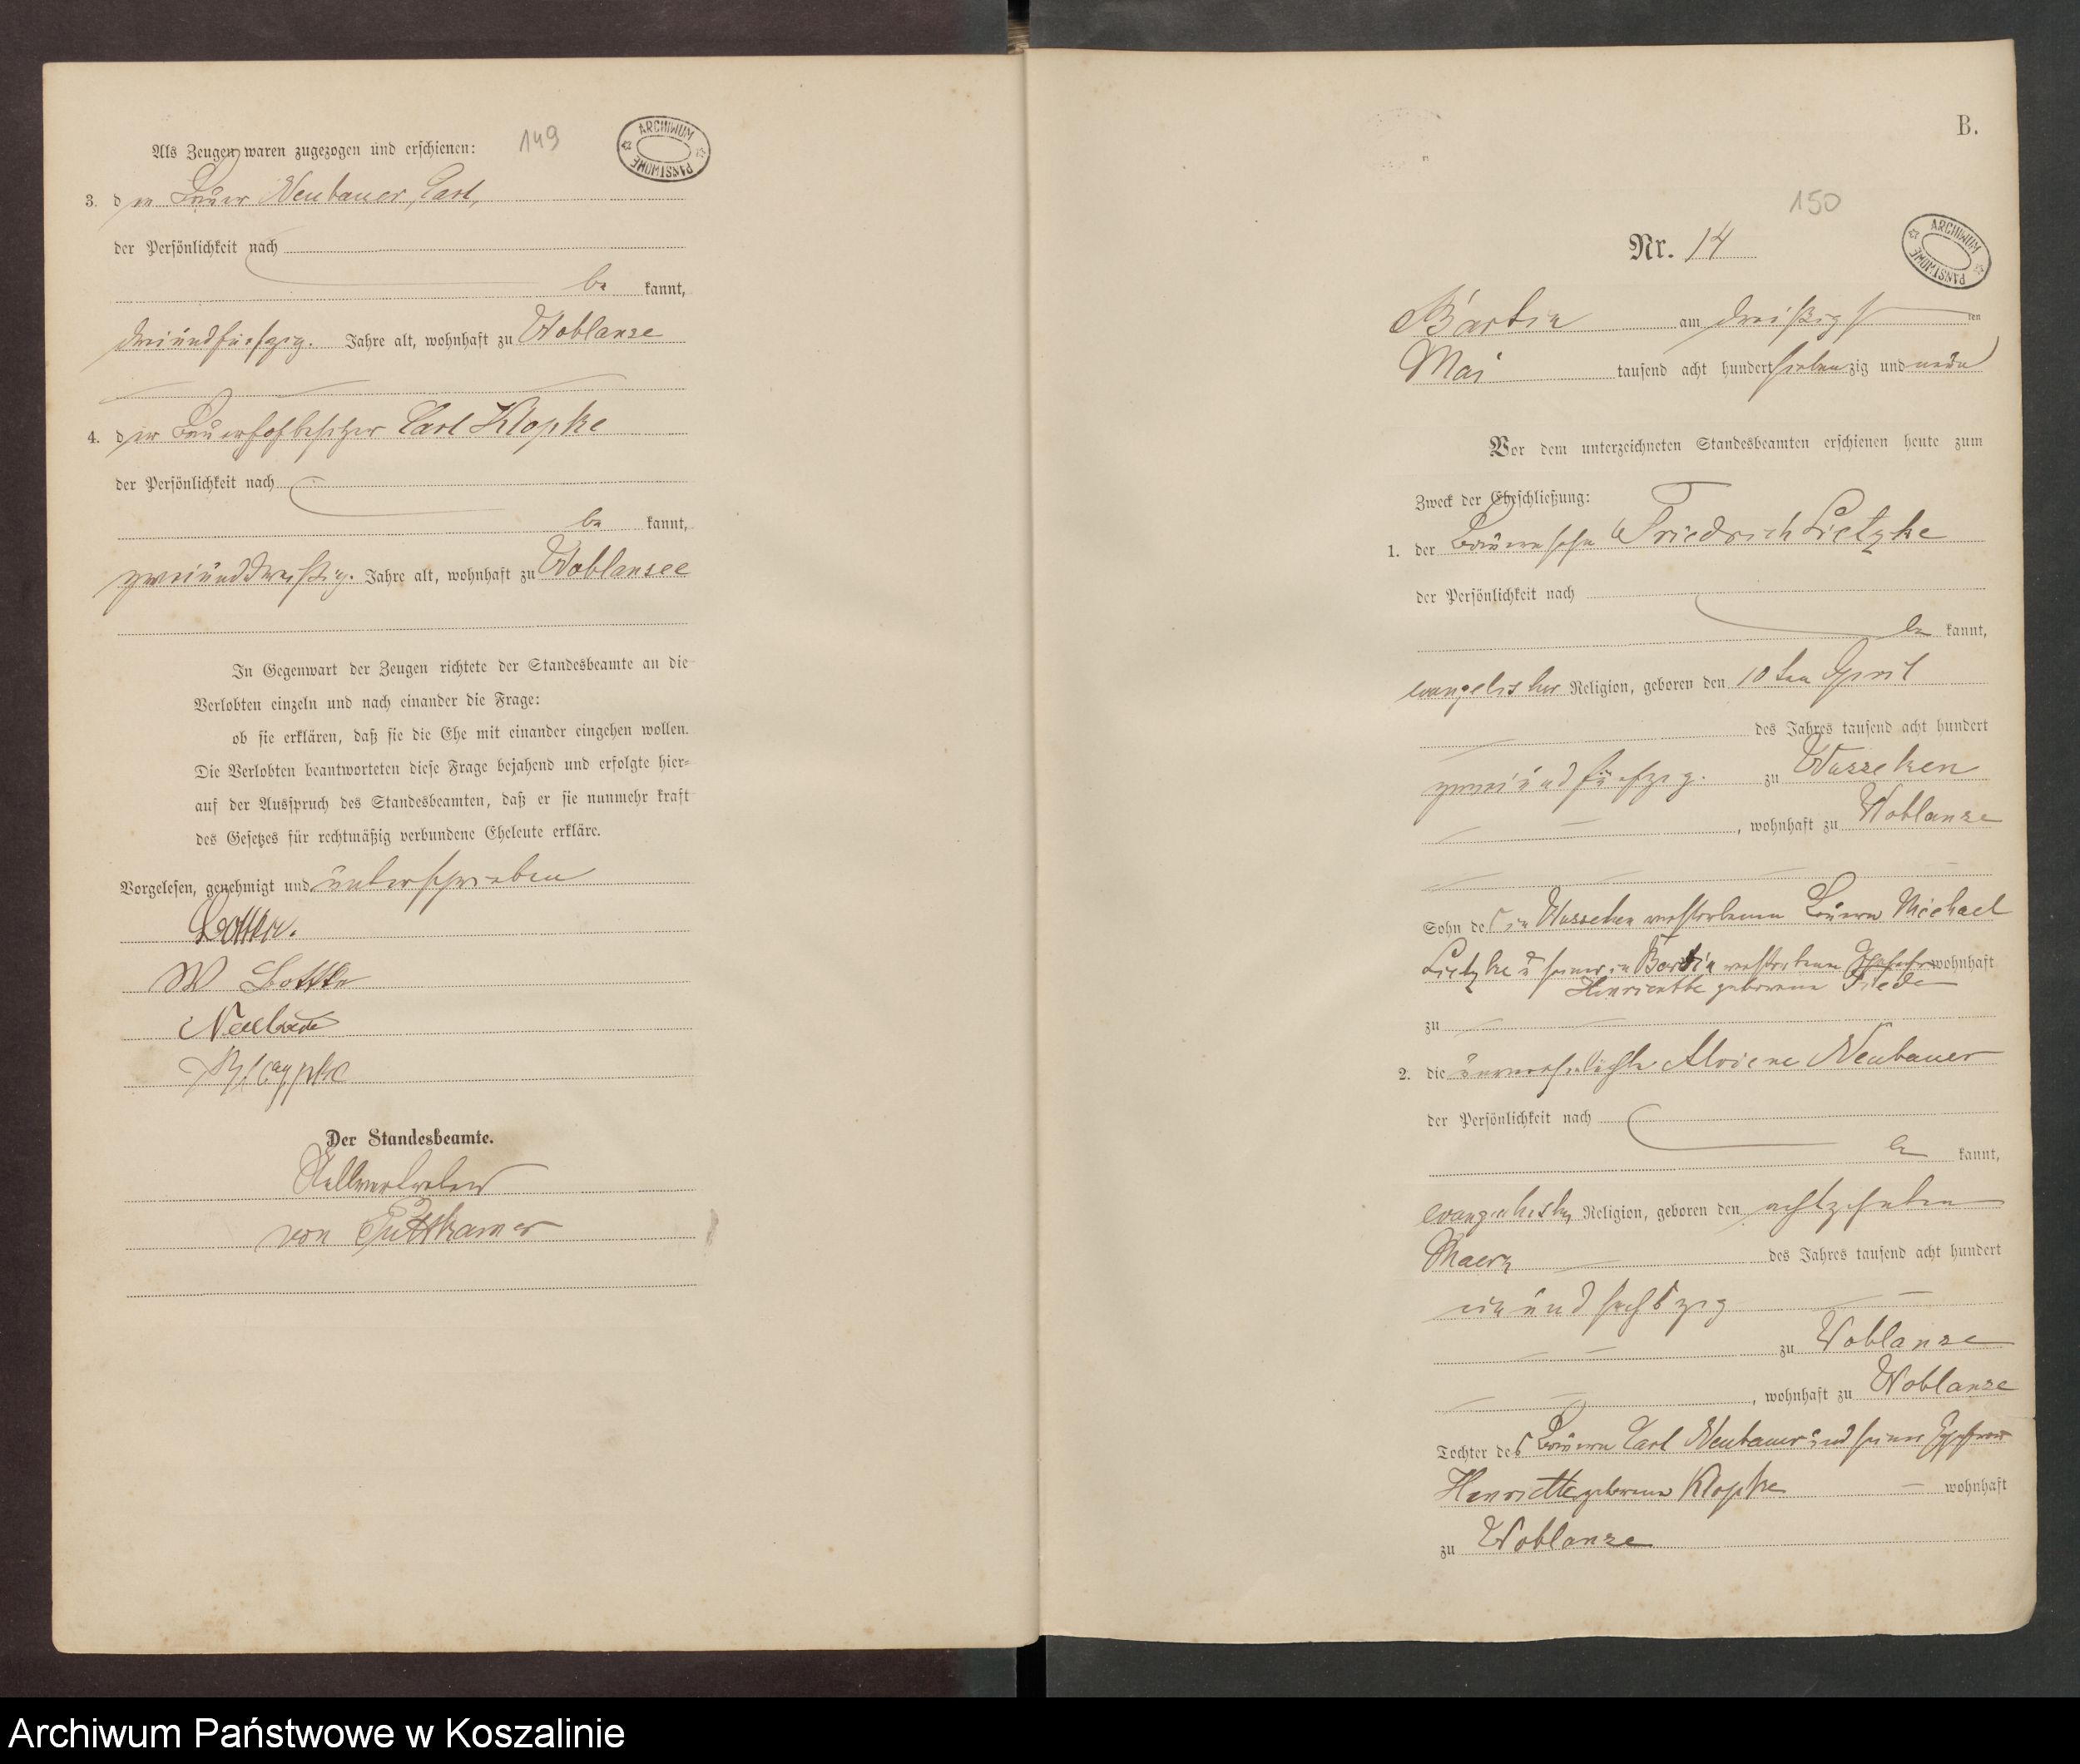 149
ARCHIWUM PAŃSTWOWE
Als Zeugen waren zugezogen und erschienen:
3. der Bauer Neubauer, Carl,
der Persönlichkeit nach
be kannt,
dreiundfünfzig. Jahre alt, wohnhaft zu Woblanse
4. der Bauerhofbesitzer Carl Klopke
der Persönlichkeit nach
be kannt,
zweiunddreißig. Jahre alt, wohnhaft zu Woblansee
In Gegenwart der Zeugen richtete der Standesbeamte an die
Verlobten einzeln und nach einander die Frage:
ob sie erklären, daß sie die Ehe mit einander eingehen wollen.
Die Verlobten beantworteten diese Frage bejahend und erfolgte hier-
auf der Ausspruch des Standesbeamten, daß er sie nunmehr kraft
des Gesetzes für rechtmäßig verbundene Eheleute erkläre.
Vorgelesen, genehmigt und unterschrieben
W
Der Standesbeamte.
Stellvertreter
von Puttkamer
B.
150
Nr. 14
ARCHIWUM PAŃSTWOWE
Bartin am dreißigsten
Mai tausend acht hundert siebenzig und neun
Vor dem unterzeichneten Standesbeamten erschienen heute zum
Zweck der Eheschließung:
1. der Bauernsohn Friedrich Lietzke
der Persönlichkeit nach
be kannt,
evangelischer Religion, geboren den 10ten April
des Jahres tausend acht hundert
zweiundfünfzig. zu Wusseken
, wohnhaft zu Woblanse
Sohn des in Wusseken verstorbenen Bauern Michael
Lietzke u seiner in Bartin verstorbenen Ehefrau wohnhaft
Henriette geborene
zu
2. die unverehelichte Alviene Neubauer
der Persönlichkeit nach
be kannt,
evangelischer Religion, geboren den achtzehnten
Maerz des Jahres tausend acht hundert
ein und sechszig
zu Woblanse
, wohnhaft zu Woblanse
Tochter des Bauern Carl Neubauer und seiner Ehefrau
Henriette geborene Klopke wohnhaft
zu Woblanse
Archiwum Państwowe w Koszalinie